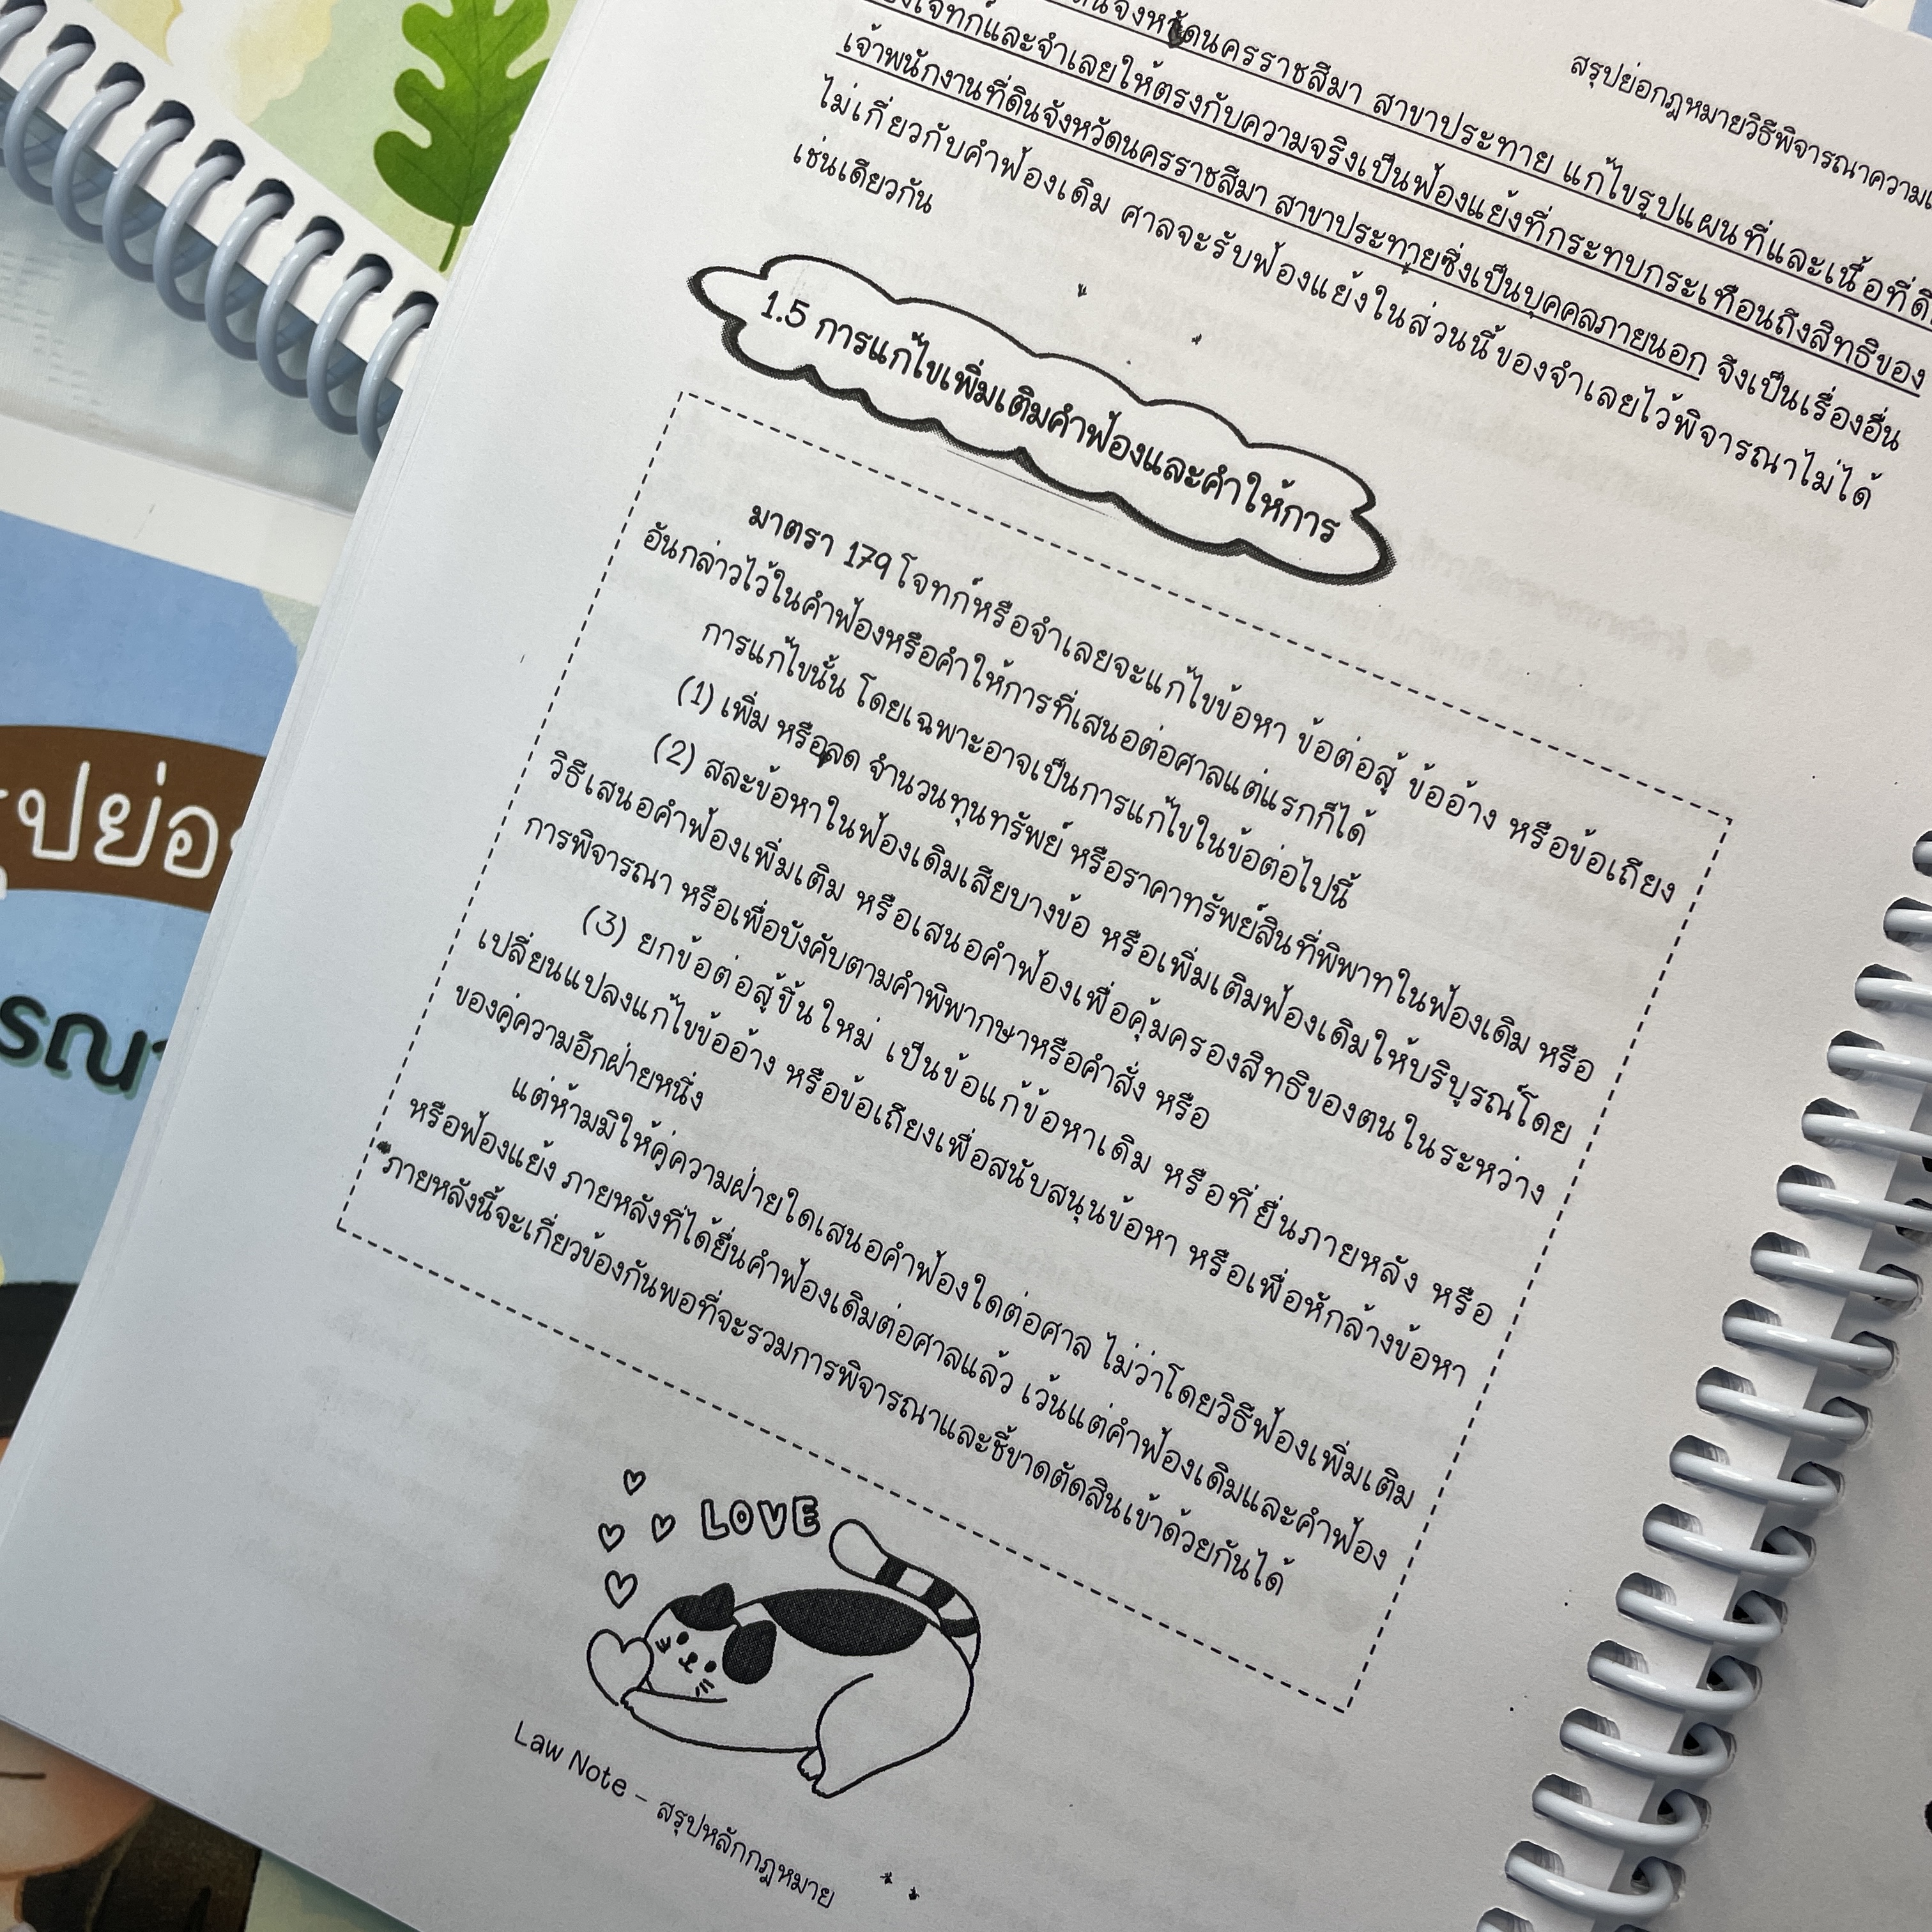 สรุปย่อกฎหมายวิธีพิจารณาความ
นครราชสีมา สาขาประทาย แก้ไขรูปแผนที่และเนื้อที่
โจทก์และจำเลยให้ตรงกับความจริงเป็นฟ้องแย้งที่กระทบกระเทือนถึงสิทธิของ
เจ้าพนักงานที่ดินจังหวัดนครราชสีมา สาขาประทายซึ่งเป็นบุคคลภายนอก จึงเป็นเรื่องอื่น
ไม่เกี่ยวกับคำฟ้องเดิม ศาลจะรับฟ้องแย้งในส่วนนี้ของจำเลยไว้พิจารณาไม่ได้
เช่นเดียวกัน
1.5 การแก้ไขเพิ่มเติมคำฟ้องและคำให้การ
มาตรา 179 โจทก์หรือจำเลยจะแก้ไขข้อหา ข้อต่อสู้ ข้ออ้าง หรือข้อเถียง
อันกล่าวไว้ในคำฟ้องหรือคำให้การที่เสนอต่อศาลแต่แรกก็ได้
การแก้ไขนั้น โดยเฉพาะอาจเป็นการแก้ไขในข้อต่อไปนี้
(1) เพิ่ม หรือลด จำนวนทุนทรัพย์ หรือราคาทรัพย์สินที่พิพาทในฟ้องเดิม หรือ
(2) สละข้อหาในฟ้องเดิมเสียบางข้อ หรือเพิ่มเติมฟ้องเดิมให้บริบูรณ์โดย
วิธีเสนอคำฟ้องเพิ่มเติม หรือเสนอคำฟ้องเพื่อคุ้มครองสิทธิของตนในระหว่าง
การพิจารณา หรือเพื่อบังคับตามคำพิพากษาหรือคำสั่ง หรือ
(3) ยกข้อต่อสู้ขึ้นใหม่ เป็นข้อแก้ข้อหาเดิม หรือที่ยื่นภายหลัง หรือ
เปลี่ยนแปลงแก้ไขข้ออ้าง หรือข้อเถียงเพื่อสนับสนุนข้อหา หรือเพื่อหักล้างข้อหา
ของคู่ความอีกฝ่ายหนึ่ง
แต่ห้ามมิให้คู่ความฝ่ายใดเสนอคำฟ้องใดต่อศาล ไม่ว่าโดยวิธีฟ้องเพิ่มเติม
หรือฟ้องแย้ง ภายหลังที่ได้ยื่นคำฟ้องเดิมต่อศาลแล้ว เว้นแต่คำฟ้องเดิมและคำฟ้อง
ภายหลังนี้จะเกี่ยวข้องกันพอที่จะรวมการพิจารณาและชี้ขาดตัดสินเข้าด้วยกันได้
LOVE
Law Note - สรุปหลักกฎหมาย